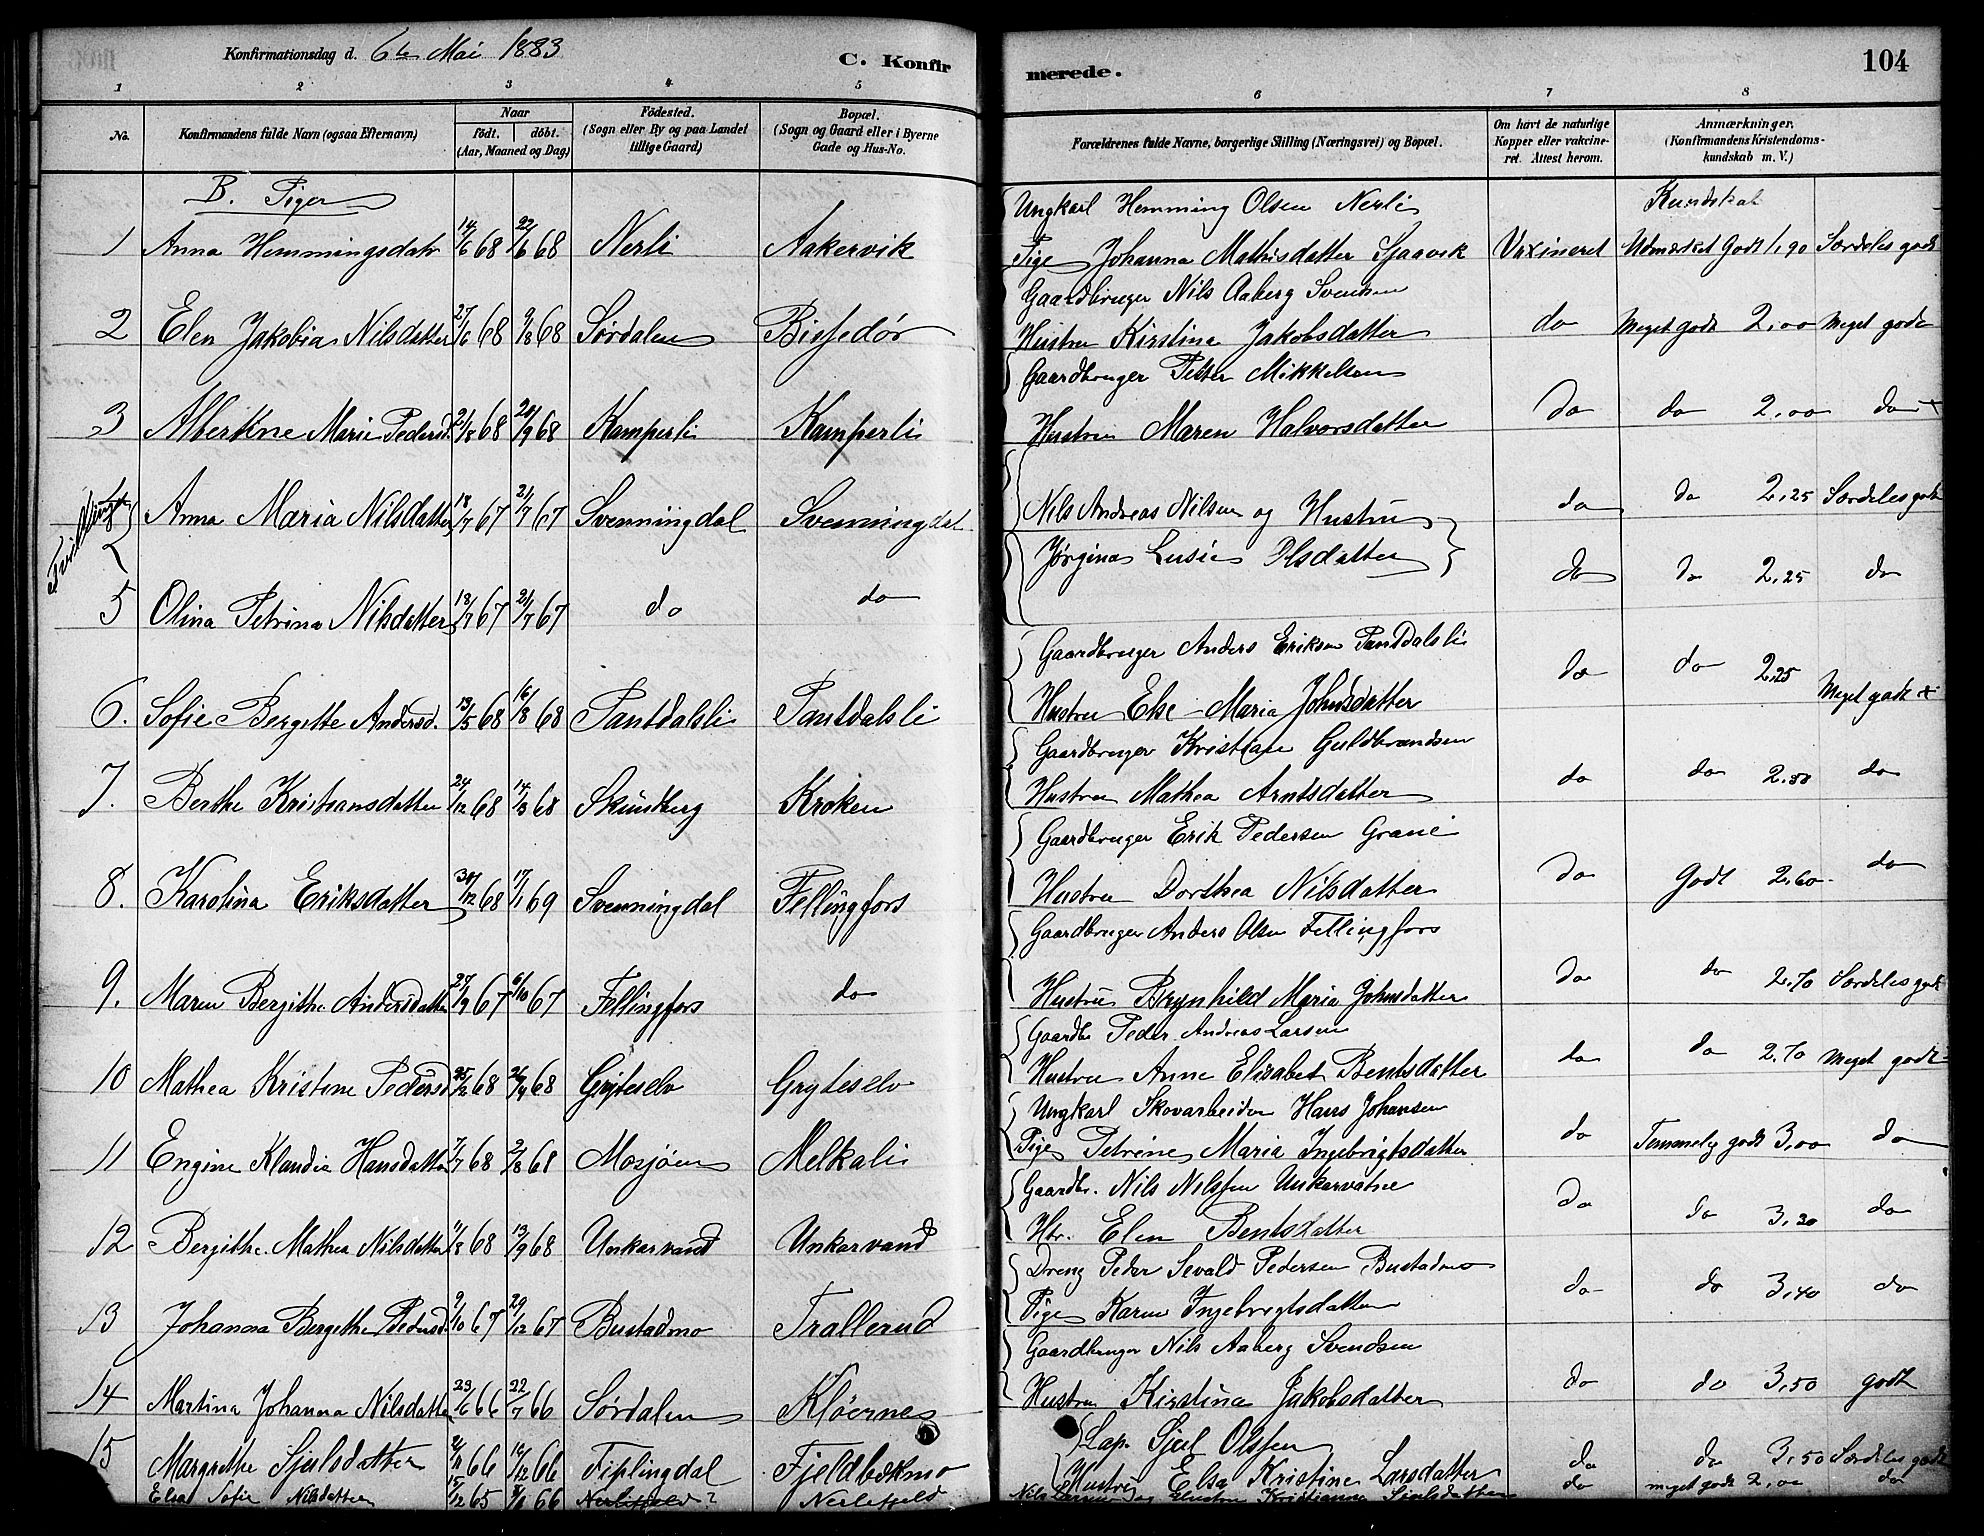 Konfirmationsdag d. 6te Mai 1883
C. Konfirmerede.
104
1 2 3 4 5 6 7 8
No.
Konfirmandens fulde Navn (ogsaa Efternavn)
Naar
født. døbt.
(Aar, Maaned og Dag)
Fødested.
(Sogn eller By og paa Landet tillige Gaard)
Bopæl.
(Sogn og Gaard eller i Byerne Gade og Hus-No.
Forældrenes fulde Navne, borgerlige Stilling (Næringsvei) og Bopæl.
Om havt de naturlige Kopper eller vakcineret. Attest herom.
Anmærkninger.
(Konfirmandens Kristendomskundskab m. V.)
B. Piger
Kundskab
Ungkarl Hemming Olsen Nerli
1 Anna Hemmingsdatr 14/6 68 22/6 68 Nerli Aakervik Pige Johanna Mathisdatter Sjaavik Vaxineret Udmærket Godt 1,90 Særdeles godt
Gaardbruger Nils Aaberg Svensen
2 Elen Jakobia Nilsdatter 27/6 68 9/8 68 Sørdalen Bisjedør Hustru Kirstina Jakobsdatter do Meget godt 2,00 Meget godt
Gaardbruger Petter Mikkelsen
3 Albertine Marie Pedersd. 2/8 68 20/9 68 Kamperli Kamperli Hustru Maren Halvorsdatter do do 2,00 do
Tvillinger
4 Anna Maria Nilsdatter 18/7 67 21/7 67 Svenningdal Svenningdal Nils Andreas Nilsen og Hustru do do 2,25 Særdeles godt
Jørgina Lusie Olsdatter
5 Olina Petrina Nilsdatter 18/7 67 21/7 67 do do do do 2,25 do
Gaardbruger Anders Eriksen Pantdalsli
6. Sofie Bergitte Andersd. 13/5 68 16/8 68 Pantdalsli Pantdalsli Hustru Else Maria Johnsdatter do do 2,25 Meget godt
Gaardbruger Kristian Guldbrandsen
7. Berthe Kristiansdatter 24/12 68 14/3 68 Skundberg Kroken Hustru Mathea Arntsdatter do do 2,50 do
Gaardbruger Erik Pedersen Grane
8. Karolina Eriksdatter 30/12 68 17/1 69 Svenningdal Fellingfors Hustru Dorthea Nilsdatter do godt 2,60 do
Gaardbruger Anders Olsen Fellingfors
9. Maren Bergithe Andersdatter 27/9 67 6/10 67 Fellingfors do Hustru Brynhild Maria Johnsdatter do do 2,70 Særdeles godt
Gaardbr Peder Andreas Larsen
10 Mathea Kristine Pedersd 25/2 68 26/4 68 Gryteselv Gryteselv Hustru Anne Elisabet Bentsdatter do do 2,70 Meget godt
Ungkarl Skovarbeider Hans Johansen
11 Engine Klaudia Hansdatter 7/7 68 2/8 68 Mosjøen Melkali Pige Petrine Maria Ingebrigtsdatter do Temmelig godt 3,00 do
Gaardbr. Nils Nilssen Unkarvatne
12 Bergithe Mathea Nilsdatter 11/8 68 13/9 68 Unkarvand Unkarvand Htr. Elen Bentsdatter do do 3,20 do
Dreng Peder Sevald Pedersen Bustadmo
13 Johanna Bergethe Pedersd 9/10 67 29/12 67 Bustadmo Trallerud Pige Karen Ingebrigtsdatter do do 3,40 do
Gaardbruger Nils Aaberg Svendsen
14 Martina Johanna Nilsdatter 23/6 66 22/7 66 Sørdalen Kløernes Hustru Kirstina Jakobsdatter do do 3,50 godt
Lap. Sjul Olssen
15 Margrethe Sjulsdatter 2/11 66 16/12 66 Fiplingdal Fjeldbekmo Hustru Elsa Kristine Larsdatter do do 3,50 Særdeles godt
Elsa Sofie Nilsdatter 15/12 65 8/1 66 Nerlifjeld? Nerlifjeld Nils Larsen og Hustru Kristianna Sjulsdatter do meget godt 2,00 do